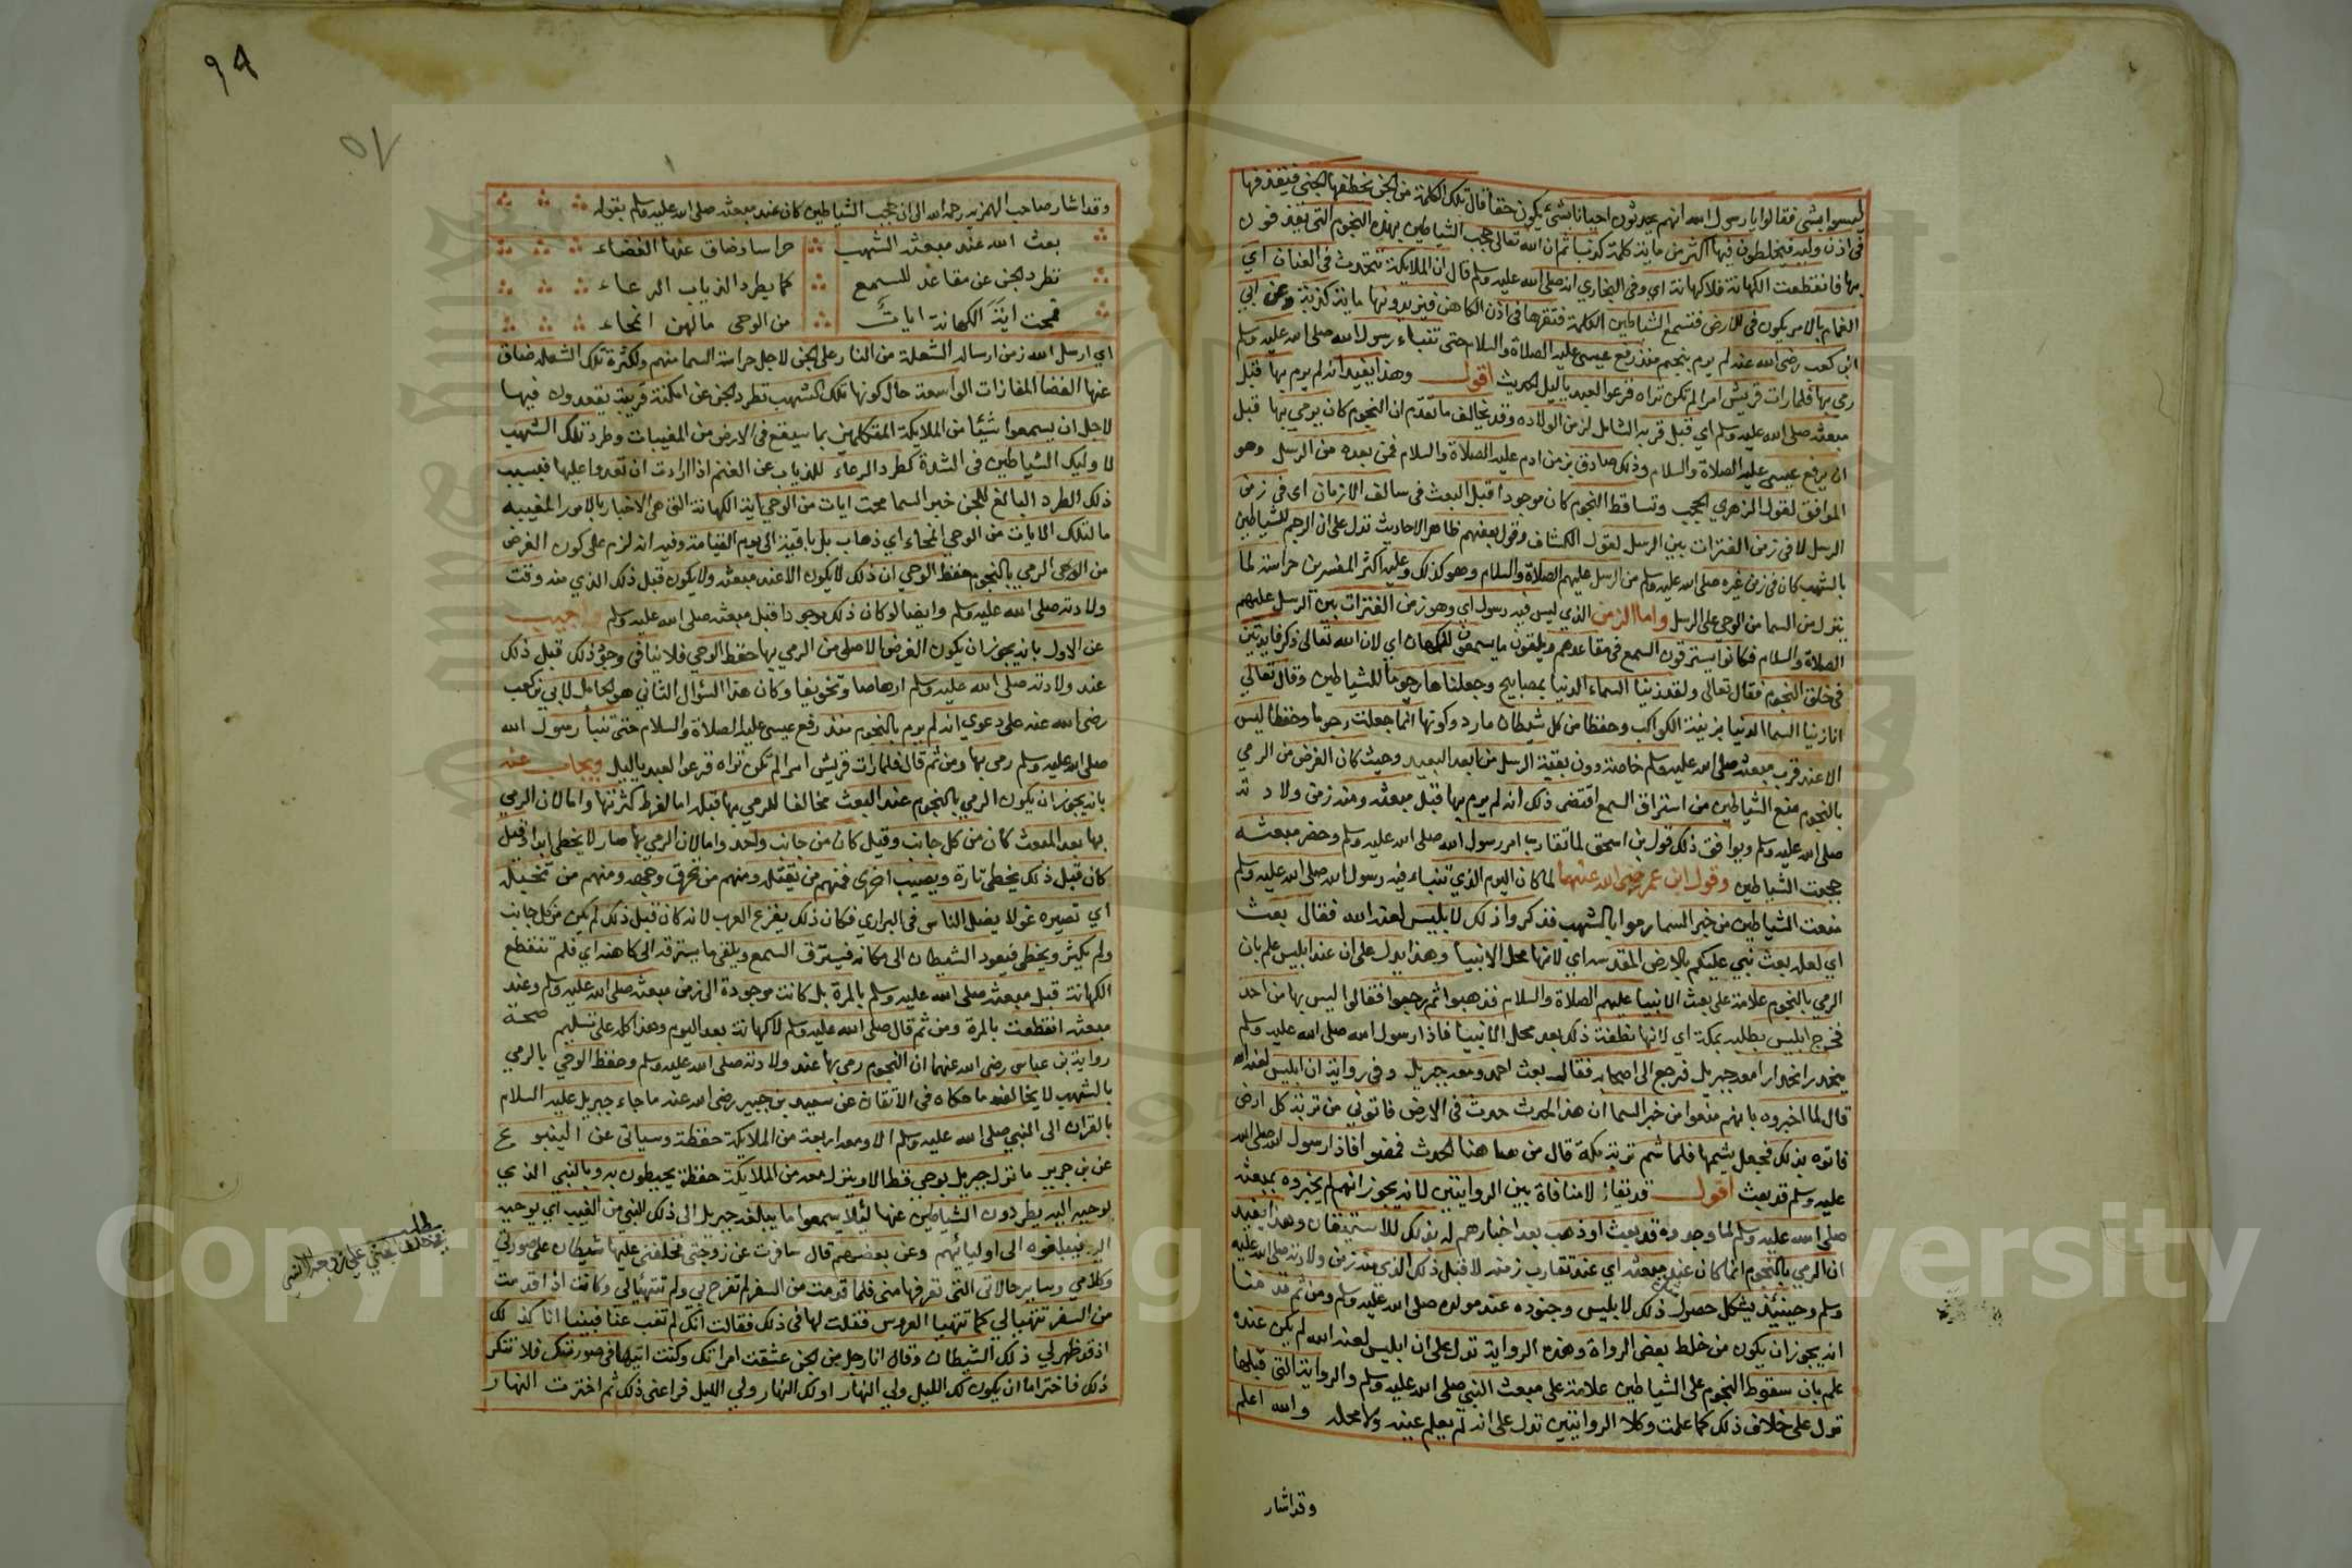 ليسوا بشي فقالوا يا رسول الله انهم يحدثون احيانا بشئ يكون حقا قال تلك الكلمة من الجن يخطفها الجني فيقذفها
في اذن وليه فيخلطون فيها اكثر من ماية كلمة كذبا ثم ان الله تعالى حجب الشياطين بهذه النجوم التي يقذفون
بها فانقطعت الكهانة فلا كهانة اي وفي البخاري انه صلى الله عليه وسلم قال ان الملايكة تتحدث في العنان اي
الغمام بالامر يكون في الارض فتسمع الشياطين الكلمة فتقرها في اذن الكاهن فيزيدونها ماية كذبة وعن ابي
ابن كعب رضى الله عنه لم يرم بنجم منذ رفع عيسى عليه الصلاة والسلام حتى تنباء رسول الله صلى الله عليه وسلم
رمى بها فلما رات قريش امرا لم تكن تراه فزعوا لعبد ياليل الحديث اقول وهذا يفيد انه لم يرم بها قبل
مبعثه صلى الله عليه وسلم اي قبل قربه الشامل لزمن الولاده وقد يخالف ما تقدم ان النجوم كان يرمي بها قبل
ان يرفع عيسى عليه الصلاة والسلام وذلك صادق بزمن ادم عليه الصلاة والسلام فمن بعده من الرسل وهو
الموافق لقول الزهري الحجب وتساقط النجوم كان موجودا قبل البعث في سالف الازمان اى في زمن
الرسل لا في زمن الفترات بين الرسل لقول الكشاف وقول بعضهم ظاهر الاحاديث تدل على ان الرجم للشياطين
بالشهب كان في زمن غيره صلى الله عليه وسلم من الرسل عليهم الصلاة والسلام وهو كذلك وعليه اكثر المفسرين حراسة لما
ينزل من السما من الوحى على الرسل واما الزمن الذي ليس فيه رسول اي وهو زمن الفترات بين الرسل عليهم
الصلاة والسلام فكانوا يسترقون السمع في مقاعدهم ويلقون ما يسمعون للكهان اي لان الله تعالى ذكر فايدتين
في خلق النجوم فقال تعالى ولقد زينا السماء الدنيا بمصابيح وجعلناها رجوما للشياطين وقال تعالي
انا زينا السما الدنيا بزينة الكواكب وحفظا من كل شيطان مارد وكونها انما جعلت رجوما وحفظا ليس
الا عند قرب مبعثه صلى الله عليه وسلم خاصة دون بقية الرسل من ابعد البعيد وحيث كان الغرض من الرمي
بالنجوم منع الشياطين من استراق السمع اقتضى ذلك انه لم يرم بها قبل مبعثه ومنه زمن ولادته
صلى الله عليه وسلم ويوافق ذلك قول بن اسحق لما تقارب امر رسول الله صلى الله عليه وسلم وحضر مبعثه
حجبت الشياطين وقول ابن عمر رضى الله عنهما لما كان اليوم الذي تنباء فيه رسول الله صلى الله عليه وسلم
منعت الشياطين من خبر السما رموا بالشهب فذكروا ذلك لابليس لعنه الله فقال بعث
اي لعله بعث نبي عليكم بالارض المقدسه اي لانها محل الانبيا وهذا يدل على ان عند ابليس علم بان
الرمي بالنجوم علامة على بعث الانبيا عليهم الصلاة والسلام فذهبوا ثم رجعوا فقالوا ليس بها من احد
فخرج ابليس يطلبه بمكة اي لانها مظنة ذلك بعد محل الانبيا فاذا رسول الله صلى الله عليه وسلم
منحدرا معه جبريل فرجع الى اصحابه فقال بعث احمد ومعه جبريل وفي رواية ان ابليس لعنه الله
قال لما اخبروه بانهم منعوا من خبر السما ان هذا الحدث حدث في الارض فاتوني من تربة كل ارض
فاتوه بذلك فجعل يشمها فلما شم تربة مكة قال من هاهنا الحدث فمضوا فاذا رسول الله صلى الله
عليه وسلم قد بعث اقول قد يقال لا منافاة بين الروايتين لانه يجوز انهم لم يخبروه بمبعثه
صلى الله عليه وسلم لما وجدوه قد بعث او ذهب بعد اخبارهم له بذلك للاستيقان وهذا يفيد
ان الرمي بالنجوم انما كان عند مبعثه اي عند تقارب زمنه لا قبل ذلك الذي منه زمن ولادته صلى الله عليه
وسلم وحينئذ يشكل حصول ذلك لابليس وجنوده عند مولده صلى الله عليه وسلم ومن ثم قدمنا
انه يجوز ان يكون من خلط بعض الرواة وهذه الرواية تدل على ان ابليس لعنه الله لم يكن عنده
علم بان سقوط النجوم على الشياطين علامة على مبعث النبي صلى الله عليه وسلم والرواية التي قبلها
تدل على خلاف ذلك كما علمت وكلا الروايتين تدل على انه لم يعلم عينه ولا محله والله اعلم
وقد اشار
وقد اشار صاحب الهمزيه رحمه الله الى ان حجب الشياطين كان عند مبعثه صلى الله عليه وسلم بقوله
بعث الله عند مبعثه الشهب حراسا وضاق عنها الفضاء
تطرد الجن عن مقاعد للسمع كما يطرد الذياب الرعاء
فمحت اية الكهانة ايات من الوحى مالهن انمحاء
اي ارسل الله زمن ارساله الشعلة من النار على الجن لاجل حراسة السما منهم ولكثرة تلك الشعله ضاق
عنها الفضا المفازات الواسعة حال كونها تلك الشهب تطرد الجن عن امكنة قريبة يقعدون فيها
لاجل ان يسمعوا شيئا من الملايكة المتكلمين بما سيقع في الارض من المغيبات وطرد تلك الشهب
لاوليك الشياطين في الشدة كطرد الرعاء للذياب عن الغنم اذا ارادت ان تعدوا عليها فبسبب
ذلك الطرد البالغ للجن خبر السما محت ايات من الوحي اية الكهانة التي هى الاخبار بالامور المغيبه
ما لتلك الايات من الوحي انمحاء اي ذهاب بل باقية الى يوم القيامة وفيه انه لزم على كون الغرض
من الوحى الرمي بالنجوم حفظ الوحي ان ذلك لا يكون الا عند مبعثه ولا يكون قبل ذلك الذي منه وقت
ولادته صلى الله عليه وسلم وايضا لو كان ذلك موجودا قبل مبعثه صلى الله عليه وسلم واجيب
عن الاول بانه يجوز ان يكون الغرض الاصلى من الرمي بها حفظ الوحي فلا ينافى وجود ذلك قبل ذلك
عند ولادته صلى الله عليه وسلم ارهاصا وتخويفا وكان هذا السؤال الثاني هو الحامل لابي بن كعب
رضى الله عنه على دعوي انه لم يرم بالنجوم منذ رفع عيسى عليه الصلاة والسلام حتى تنبأ رسول الله
صلى الله عليه وسلم رمى بها ومن ثم قال فلما رات قريش امرا لم تكن تراه فزعوا لعبد ياليل ويجاب عنه
بانه يجوز ان يكون الرمي بالنجوم عند البعث مخالفا للرمي بها قبله اما لفرط كثرتها واما لان الرمي
بها بعد المبعث كان من كل جانب وقيل كان من جانب واحد واما لان الرمي بها صار لا يخطي ابدا وقبل
كان قبل ذلك يخطي تارة ويصيب اخرى فمنهم من تقتله ومنهم من تحرق وجهه ومنهم من تخبله
اي تصيره غولا يضل الناس في البراري فكان ذلك يفزع العرب لانه كان قبل ذلك لم يكن من كل جانب
ولم يكثر ويخطى فيعود الشيطان الى مكانه فيسترق السمع ويلقى ما يسترقه الى كاهنه اي فلم تنقطع
الكهانة قبل مبعثه صلى الله عليه وسلم بالمرة بل كانت موجودة الى زمن مبعثه صلى الله عليه وسلم وعند
مبعثه انقطعت بالمرة ومن ثم قال صلى الله عليه وسلم لا كهانة بعد اليوم وهذا كله على تسليم صحة
رواية بن عباس رضى الله عنهما ان النجوم رمى بها عند ولادته صلى الله عليه وسلم وحفظ الوحي بالرمي
بالشهب لا يخالفه ما حكاه في الاتقان عن سعيد بن جبير رضى الله عنه ما جاء جبريل عليه السلام
بالقران الى النبي صلى الله عليه وسلم الا ومعه اربعة من الملايكة حفظة وسياتي عن الينبوع
عن بن جرير ما نزل جبريل بوحي قط الا وينزل معه من الملايكة حفظة يحيطون به وبالنبي الذي
يوحيه اليه يطردون الشياطين عنها ليلا يسمعوا ما يبلغه جبريل الى ذلك النبي من الغيب اي يوحيه
اليه فيبلغوه الى اوليائهم وعن بعضهم قال سافرت عن زوجتي فخلفني عليها شيطان على صورتي
وكلامي وساير حالاتي التي تعرفها مني فلما قدمت من السفر لم تفرح بي ولم تتهيا لي وكانت اذا قدمت
من السفر تتهيا لي كما تتهيا العروس فقلت لها في ذلك فقالت انك لم تغب عنا فبينا انا كذلك
اذ قد ظهر لي ذلك الشيطان وقال انا رجل من الجن عشقت امراتك وكنت اتيها في صورتك فلا تنكر
ذلك فاختر اما ان يكون لك الليل ولي النهار او لك النهار ولي الليل فراعني ذلك ثم اخترت النهار
مطلب